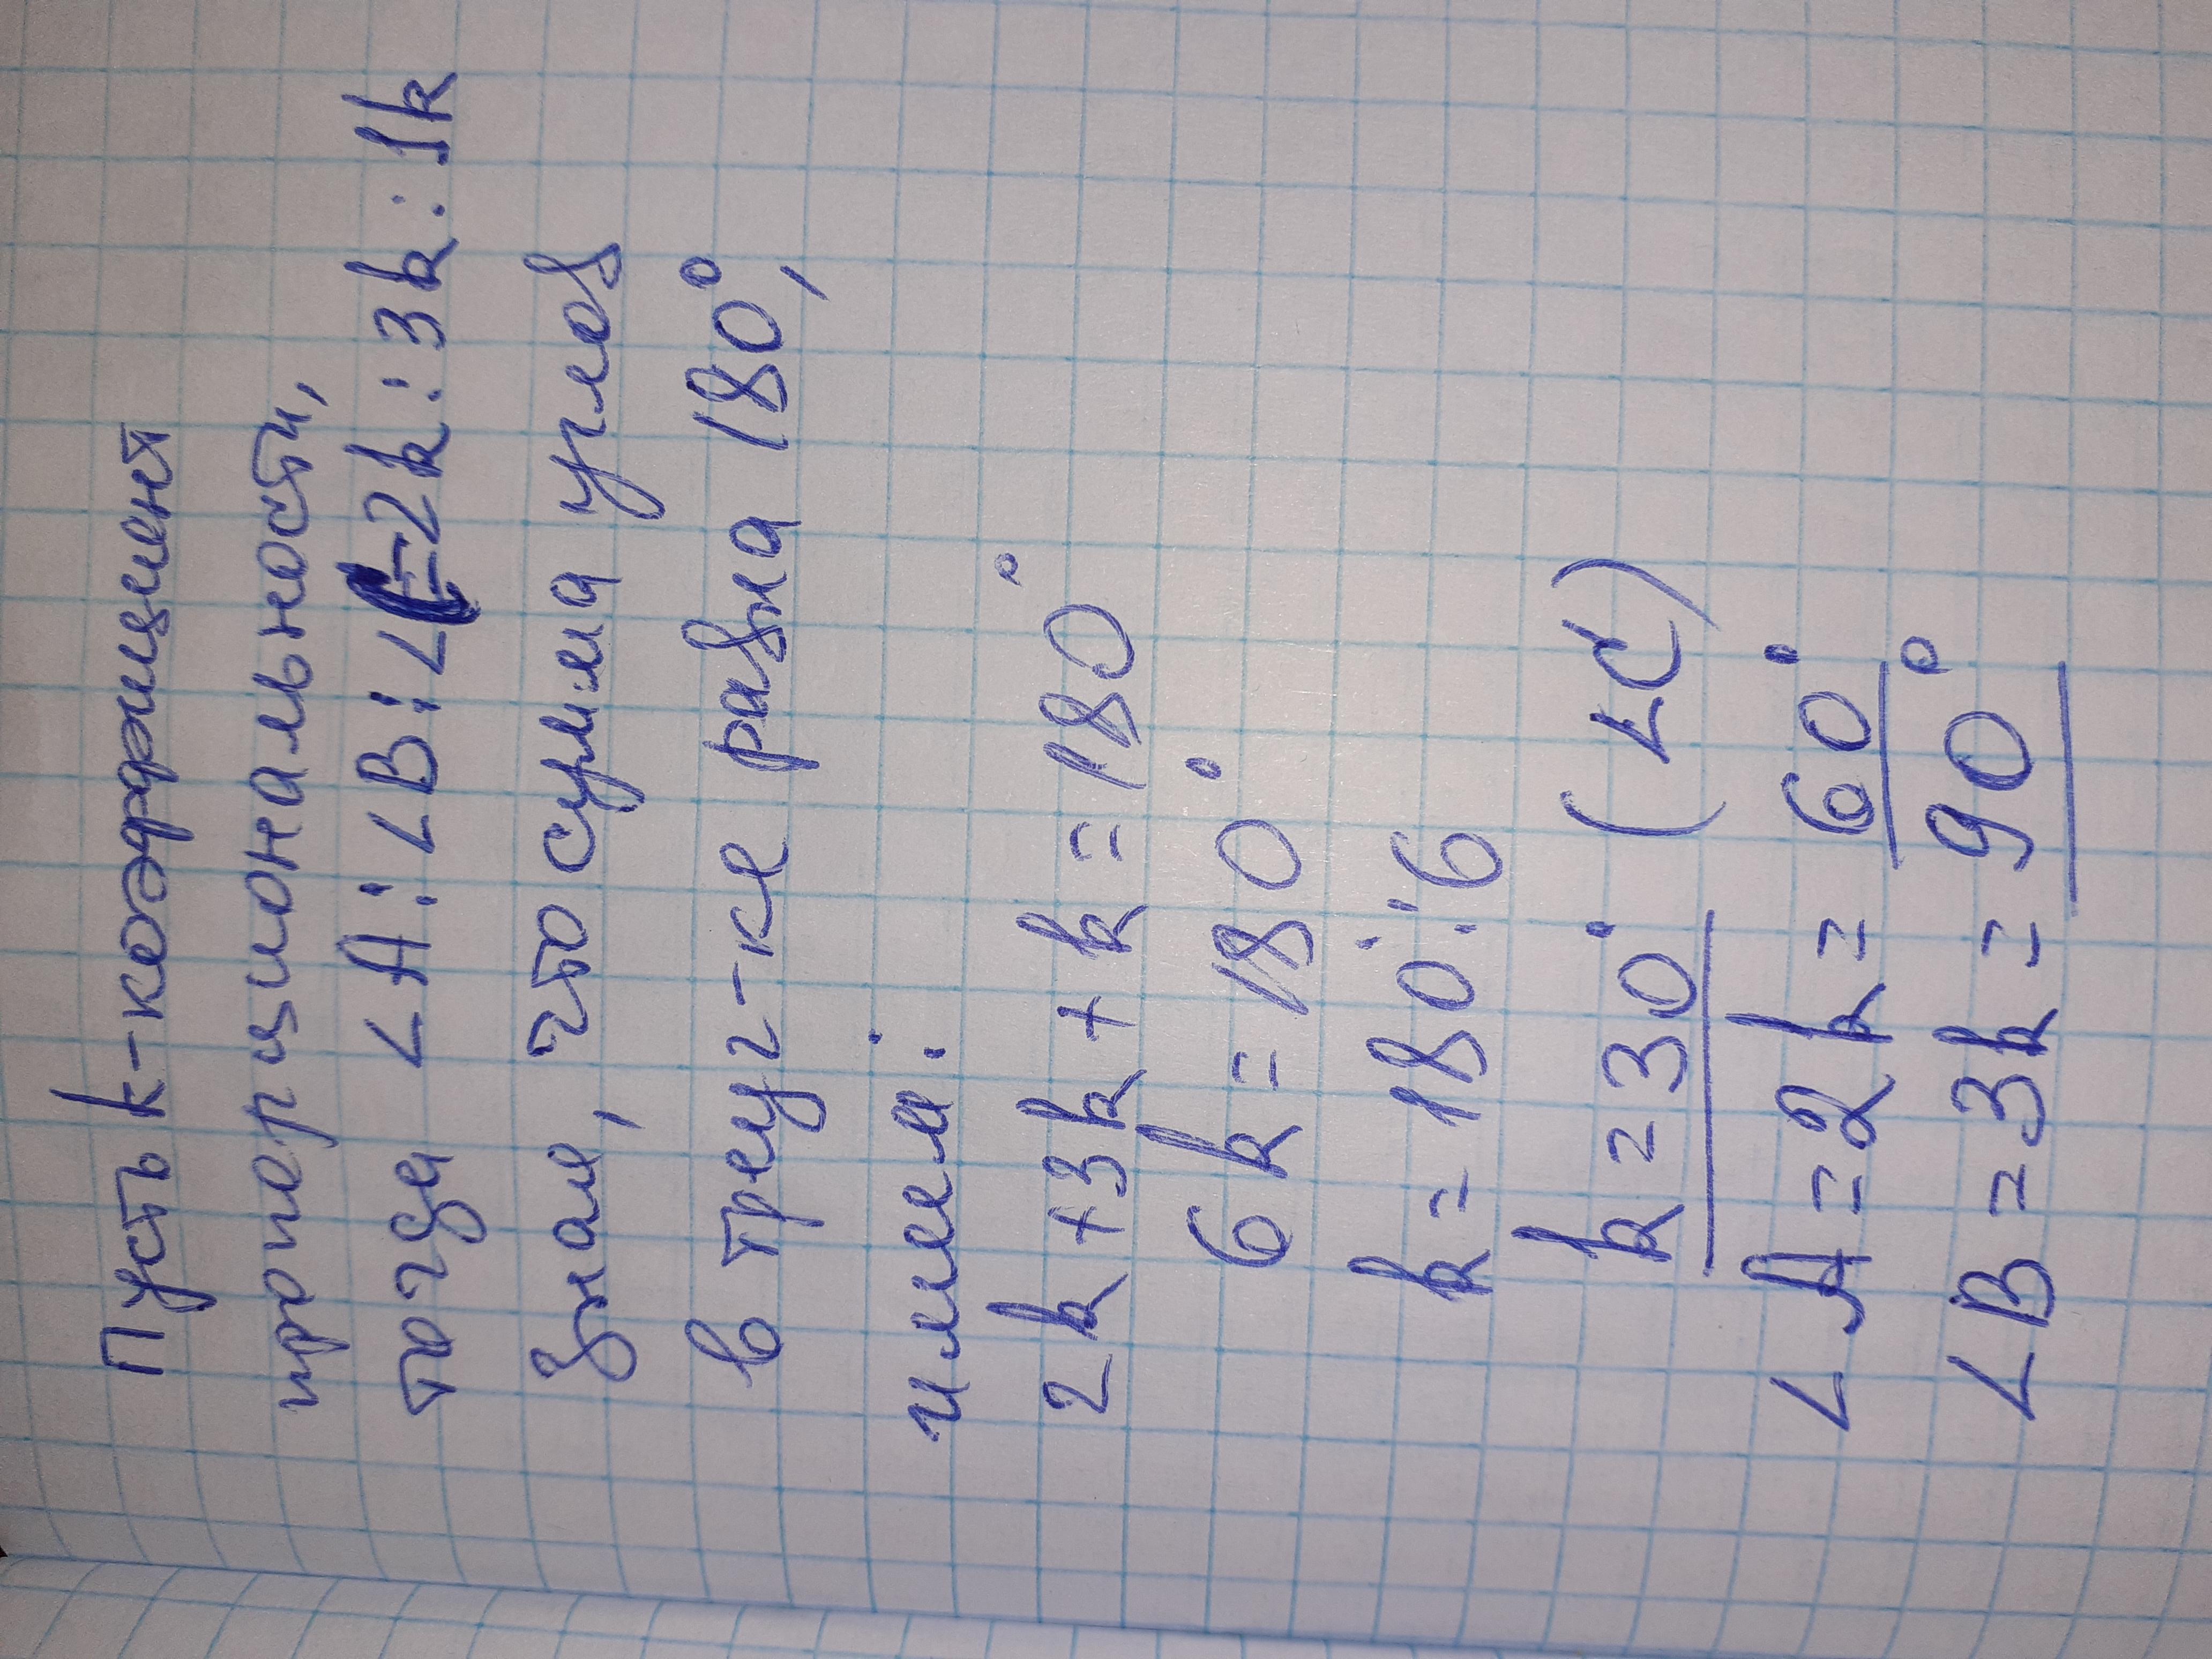 Пусть k-коэффициент
пропорциональности,
тогда ∠A:∠B:∠C=2k:3k:1k
Зная, что сумма углов
в треуг-ке равна 180°,
имеем:
2k+3k+k=180°
6k=180°
k=180°:6
k=30° (∠C)
∠A=2k=60°
∠B=3k=90°